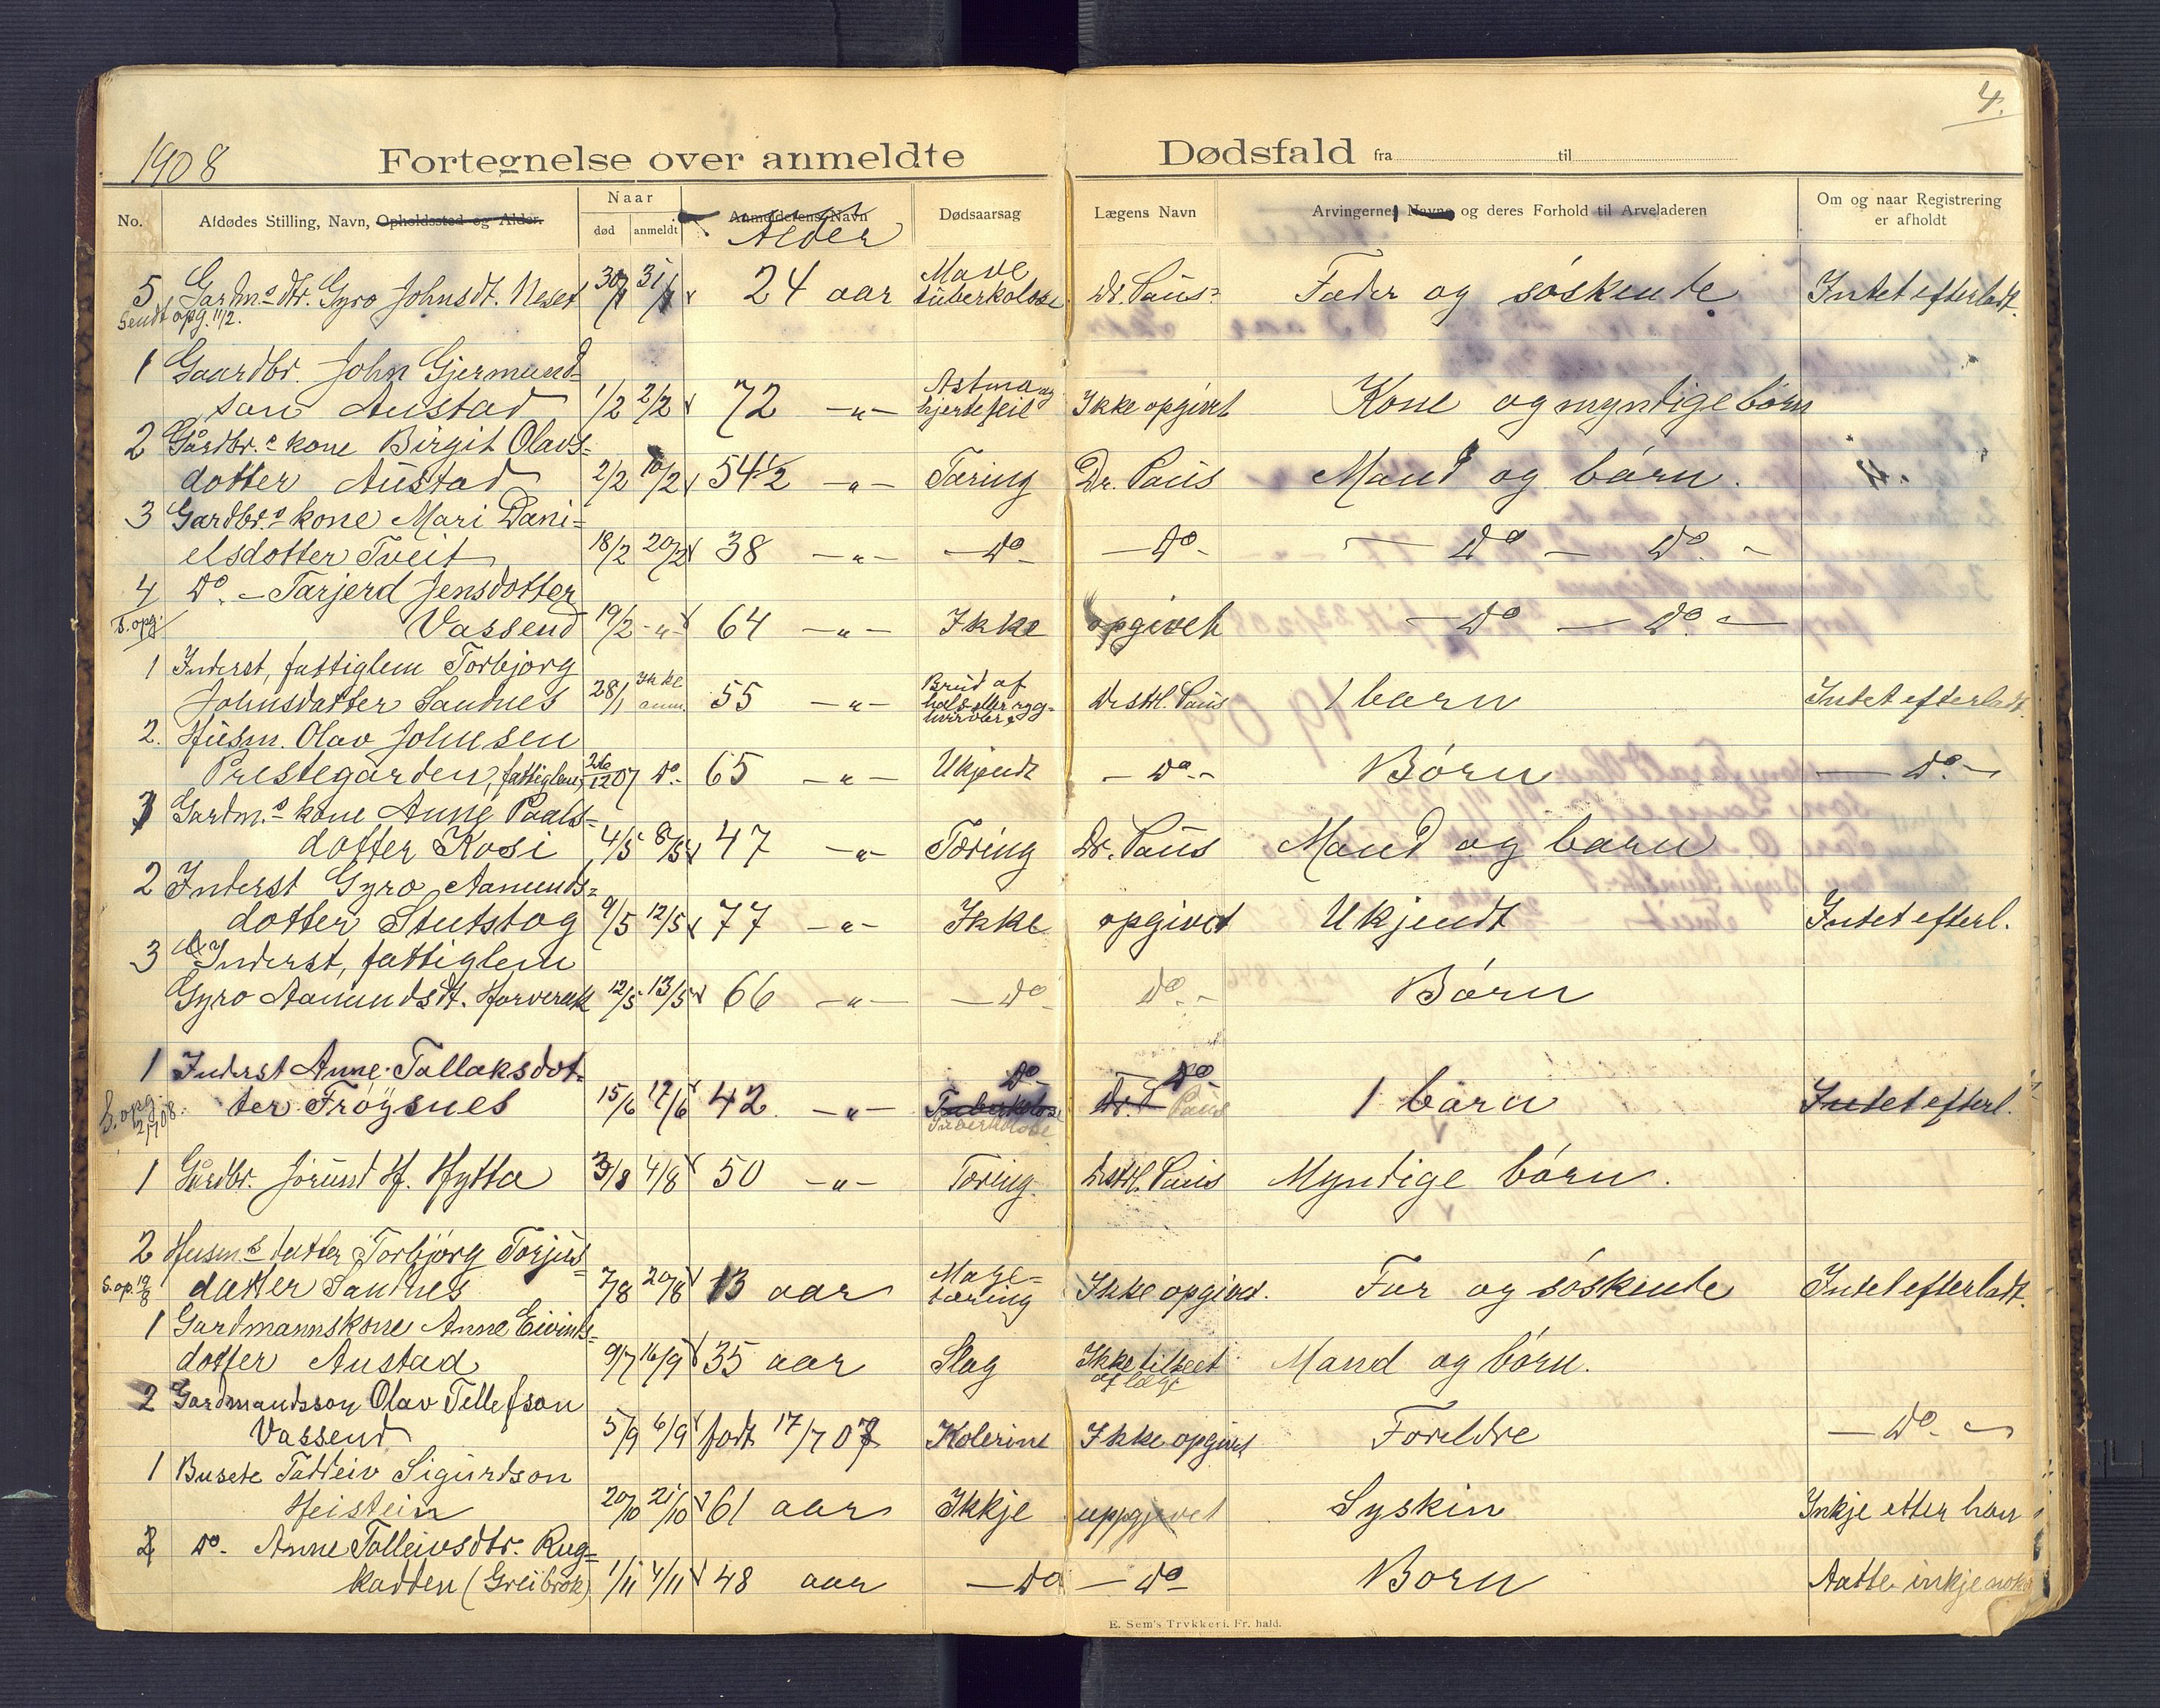 4.
1908
Fortegnelse over anmeldte Dødsfald fra til
No. Afdødes Stilling, Navn, Opholdssted og Alder. Naar død anmeldt Anmelderens Navn Alder Dødsaarsag Lægens Navn Arvingernes Navne og deres Forhold til Arveladeren Om og naar Registrering er afholdt
5 Gardm.s dtr. Gyro Johnsdt. Neset 30/1 31/1 24 aar Mave tuberkolose Dr. Paus Fader og søskende Intet efterladt.
Sendt opg. 11/2.
1 Gaardbr. John Gjermund-
son Austad 1/2 2/2 72 -"- Astma og hjertefeil Ikke opgivet Kone og myndige børn
2 Gårdbr.s kone Birgit Olavs-
dotter Austad 2/2 10/2 54 1/2 -"- Tæring Dr. Paus Mand og børn.
3 Gardbr.s kone Mari Dani-
elsdotter Tveit 18/2 20/2 38 -"- -Do- -Do- - Do - Do. -
4 Do. - Tarjerd Jensdotter
S. opg. Vassend 19/2 -"- 64 -"- Ikke opgivet - Do - Do -
1 Inderst, fattiglem Torbjorg
Johnsdatter Sandnes 28/1 ikke anm. 55 -"- Brud af hals eller ryg- hvirvler Dr. Paus 1 barn Intet efterladt.
2. Husm. Olav Johnsen
Prestegården, fattiglem, 12 07 Do. 65 -"- Ukjendt - Do. - Børn - Do. -
1 Gardm.s kone Anne Paals-
dotter Kosi 4/5 8/5 47 -"- Tæring Dr. Paus Mand og barn
2 Inderst Gyro Aamunds-
dotter Stutstog 9/5 12/5 77 -"- Ikke opgivet Ukjendt Intet efterl.
3 Inderst, fattiglem
Gyro Aamundsdt. Horverak 12/5 13/5 66 -"- - Do - Do. - Børn
1 Inderst Anne Tallaksdot- Do - Do -
ter Frøysnes 15/6 17/6 42 -"- Tuberkolos Dr. Paus 1 barn Intet efterl.
S. opg. 2/7 08. Tuberkolose
1 Gårdbr. Jorund H. Hytta 3/8 4/8 50 -"- Tæring. Dr. Paus Myndige børn.
2 Husm.s datter Torbjørg Torjus-
S. op. 19/8 datter Sandnes 7/8 20/8 13 aar Mave- tæring Ikke opgivet. Far og søskende Intet efterladt.
1 Gardmannskone Anne Eivinds-
dotter Austad 9/7 16/9 35 aar Slag Ikke tilseet af læge Mand og børn.
2 Gardmandsson Olav Tellefson
Vassend 5/9 6/9 født 17/7 07 Kolerine Ikke opgivet Foreldre - Do. -
1 Busete Taddeiv Sigurdson
Heistein 20/10 21/10 61 aar Ikkje uppgjevet Syskin Inkje etter han
2 Do. Anne Tolleivsdtr. Rug-
kadden (Greibrok) 1/11 4/11 48 aar - Do - Do - Born Aatte inkje noko
E. Sem's Trykkeri. Fr. hald.